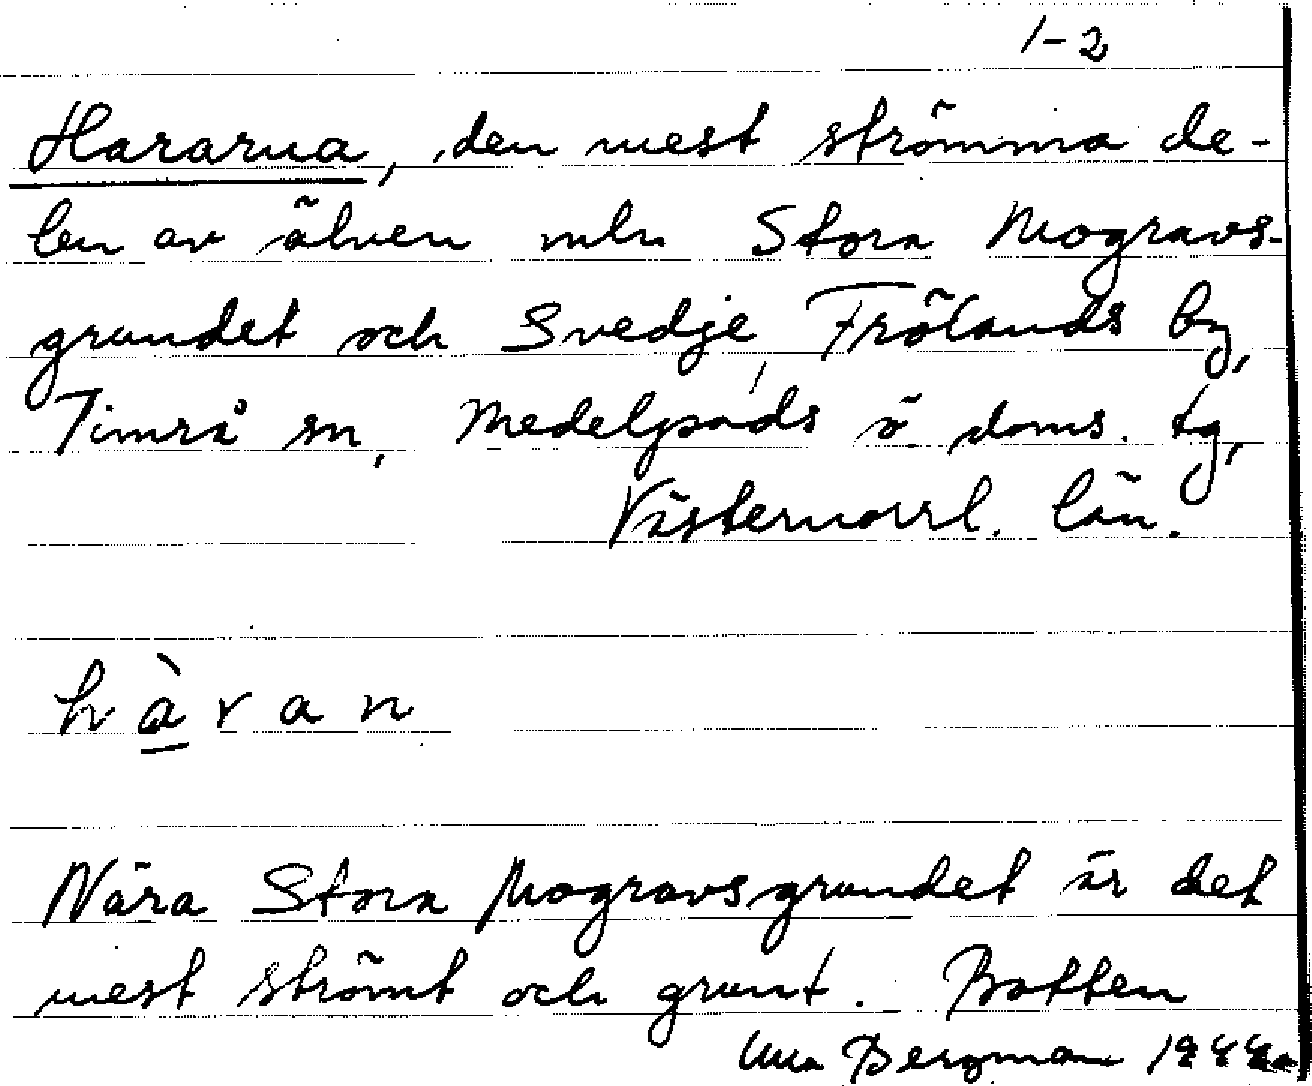 1-2
Hararna, den mest strömma de-
len av älven mln Stora Mogravs-
grundet och Svedje, Frölands by,
Timrå sn, Medelpads ö doms. tg,
Västernorrl. län.
hàran
Nära Stora Mogravsgrundet är det
mest strömt och grunt. Botten
Bergman